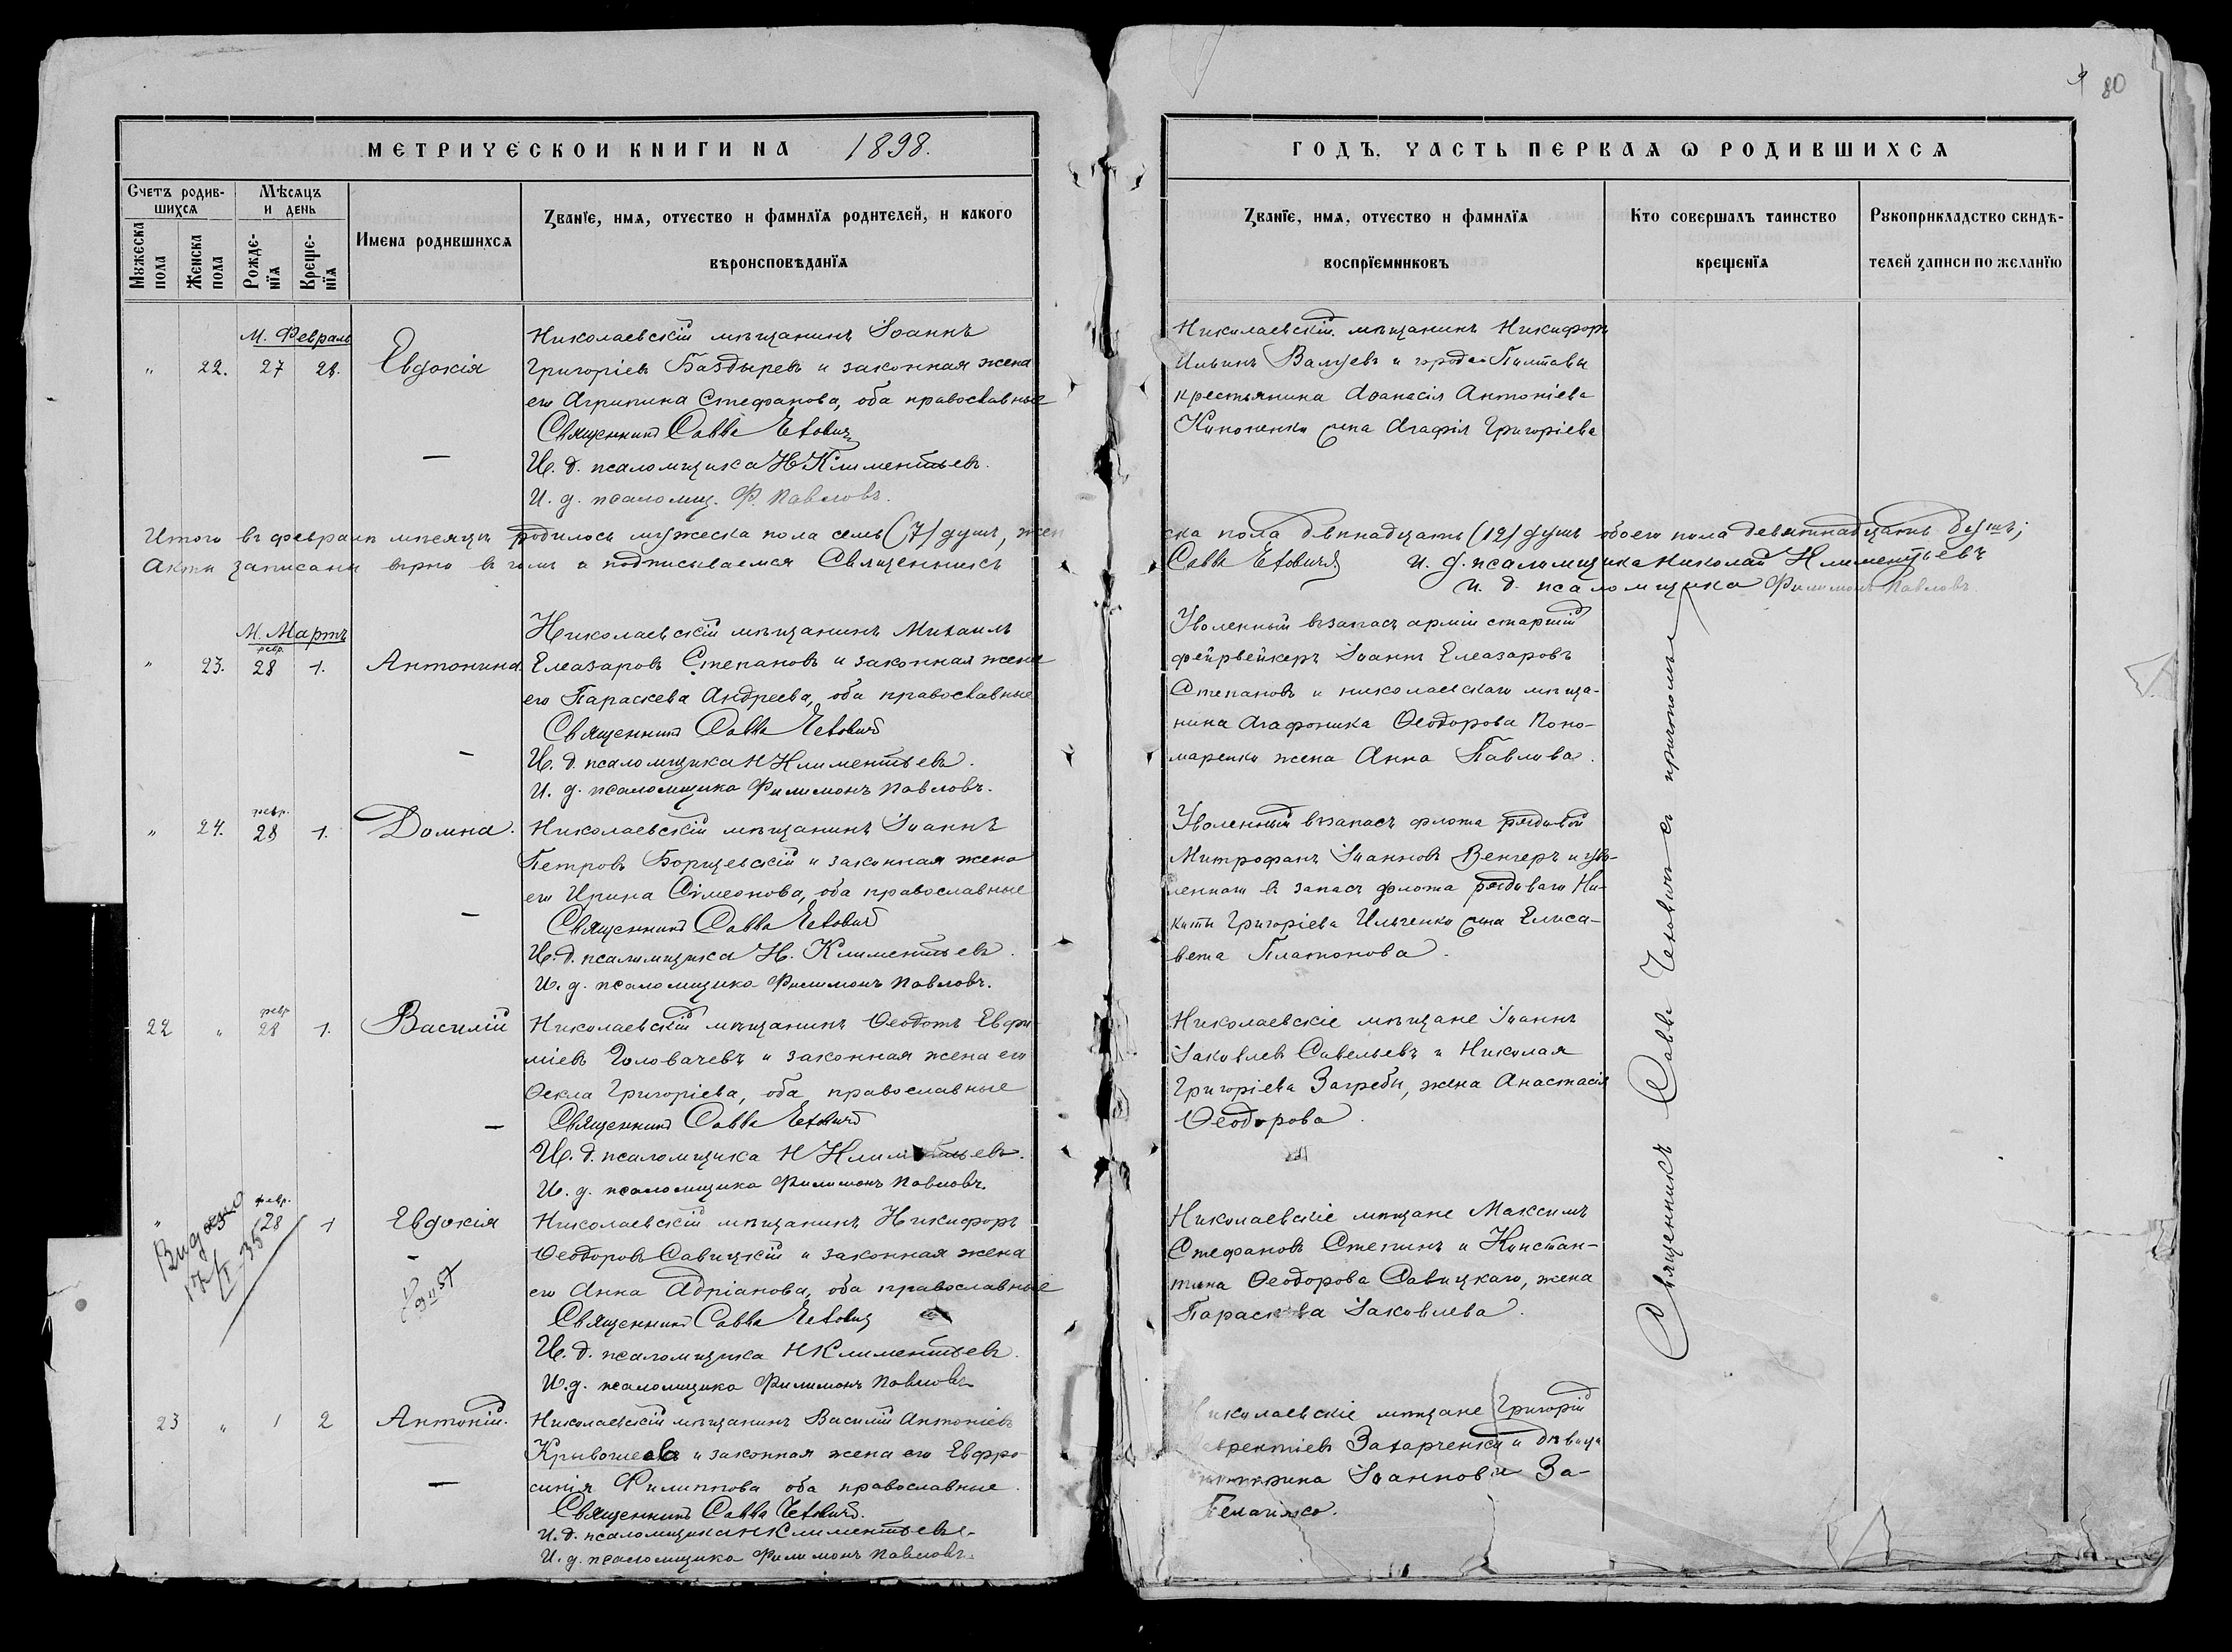 9 80
МЕТРИЧЕСКОЙ КНИГИ НА 1898.
ГОДЪ, ЧАСТЬ ПЕРВАЯ Ѡ РОДИВШИХСЯ
Счетъ родив-
шихся
Мѣсяцъ
и день
Мужеска
пола
Женска
пола
Рожде-
нїя
Креще-
нїя
Имена родившихся
Званїе, имя, отчество и фамилїя родителей, и какого
вѣроисповѣданїя
Званїе, имя, отчество и фамилїя
воспрїемниковъ
Кто совершалъ таинство
крещенїя
Рукоприкладство свидѣ-
телей записи по желанїю
М. Февраль
" 22. 27 28. Евдокія
Николаевскій мѣщанинъ Іоаннъ
Григоріевъ Баздыревъ и законная жена
его Агрипина Стефанова, оба православные
Священникъ Савва Чехович
И. д. псаломщика Н Климентьевъ.
И. д. псаломщ. Ф. Павловъ.
Николаевскій мѣщанинъ Никифоръ
Ильинъ Валуевъ и города Полтавы
крестьянина Аѳанасія Антоніева
Кононенко жена Агафія Григоріева
Итого въ февралѣ мѣсяцѣ родилось мужеска пола семь (7) душъ, жен
ска пола двѣнадцать (12) душъ обоего пола девятнадцать душъ;
Акты записаны вѣрно въ чемъ и подписываемся Священникъ
Савва Чеховичъ И. д. псаломщика Николай Климентьевъ
И. д. псаломщика Филимонъ Павловъ
М. Мартъ
февр.
" 23. 28 1. Антонина.
Николаевскій мѣщанинъ Михаилъ
Елеазаровъ Степановъ и законная жена
его Параскева Андреева, оба православные
Священникъ Савва Чеховичъ
И. д. псаломщика Н Климентьевъ.
И. д. псаломщика Филимонъ Павловъ.
Уволенный въ запасъ арміи старшій
фейрвейкеръ Іоаннъ Елеазаровъ
Степановъ и николаевскаго мѣща-
нина Агафоника Ѳеодорова Поно-
маренки жена Анна Павлова.
февр.
" 24. 28 1. Домна.
Николаевскій мѣщанинъ Іоаннъ
Петровъ Борщевскій и законная жена
его Ирина Сімеонова, оба православные
Священникъ Савва Чеховичъ
И. д. псаломщика Н. Климентьевъ.
И. д. псаломщика Филимонъ Павловъ.
Уволенный въ запасъ флота рядовой
Митрофанъ Іоанновъ Венгеръ и уво-
леннаго въ запасъ флота рядоваго Ни-
киты Григоріева Ильченко жена Елиса-
вета Платонова.
февр
22 " 28 1. Василій
Николаевскій мѣщанинъ Ѳеодотъ Евфи-
міевъ Головачевъ и законная жена его
Ѳекла Григоріева, оба православные
Священникъ Савва Чеховичъ
И. д. псаломщика Н Климентьевъ.
И. д. псаломщика Филимонъ Павловъ.
Николаевскіе мѣщане Іоаннъ
Іаковлевъ Савельевъ и Николая
Григоріева Загребы, жена Анастасія
Ѳеодорова.
февр.
" 28 1 Евдокія
Видано
Николаевскій мѣщанинъ Никифоръ
Ѳеодоровъ Савицкій и законная жена
его Анна Адріанова, оба православные
Священникъ Савва Чехович
И. д. псаломщика Н Климентьевъ.
И. д. псаломщика Филимонъ Павловъ
Николаевскіе мѣщане Максимъ
Стефановъ Степинъ и Констан-
тина Ѳеодорова Савицкаго, жена
Параскева Іаковлева.
23 " 1 2 Антоній.
Николаевскій мѣщанинъ Василій Антоніевъ
Кривошеевъ и законная жена его Евфро-
синія Филиппова оба православные.
Священникъ Савва Чеховичъ.
И. д. псаломщика Н Климентьевъ.
И. д. псаломщика Филимонъ Павловъ.
Николаевскіе мѣщане Григорій
Лаврентіевъ Захарченко и дѣвица
Іоаннова За-
Священникъ Савва Чеховичъ съ причтомъ